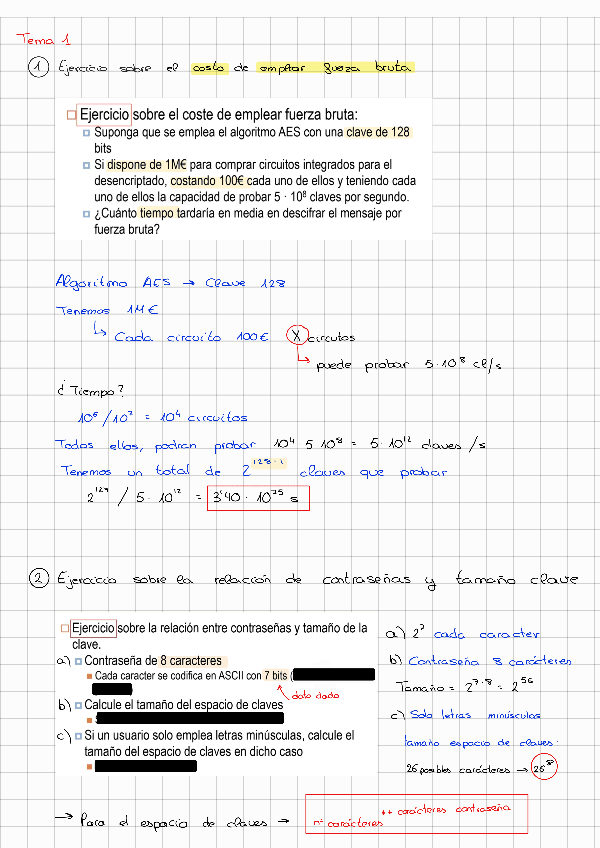 Tema 1
1 Ejercicio sobre el costo de emplear fuerza bruta
Ejercicio sobre el coste de emplear fuerza bruta:
Suponga que se emplea el algoritmo AES con una clave de 128
bits
Si dispone de 1M€ para comprar circuitos integrados para el
desencriptado, costando 100€ cada uno de ellos y teniendo cada
uno de ellos la capacidad de probar 5 · 10⁸ claves por segundo.
¿Cuánto tiempo tardaría en media en descifrar el mensaje por
fuerza bruta?
Algoritmo AES → Clave 128
Tenemos 1M€
↳ Cada circuito 100€ X circuitos
↳ puede probar 5·10⁸ cl/s
¿Tiempo?
10⁶/10² = 10⁴ circuitos
Todos ellos, podran probar 10⁴ 5 10⁸ = 5·10¹² claves /s
Tenemos un total de 2¹²⁸⁻¹ claves que probar
2¹²⁷ / 5·10¹² = 3'40 · 10²⁵ s
2 Ejercicio sobre la relación de contraseñas y tamaño clave
Ejercicio sobre la relación entre contraseñas y tamaño de la
clave.
a) Contraseña de 8 caracteres
Cada caracter se codifica en ASCII con 7 bits (
dato dado
b) Calcule el tamaño del espacio de claves
c) Si un usuario solo emplea letras minúsculas, calcule el
tamaño del espacio de claves en dicho caso
a) 2⁷ cada caracter
b) Contraseña 8 carácteres
Tamaño = 2⁷·⁸ = 2⁵⁶
c) Solo letras minúsculas
tamaño espacio de claves:
26 posibles carácteres → 26⁸
→ Para el espacio de claves → nº carácteres carácteres contraseña